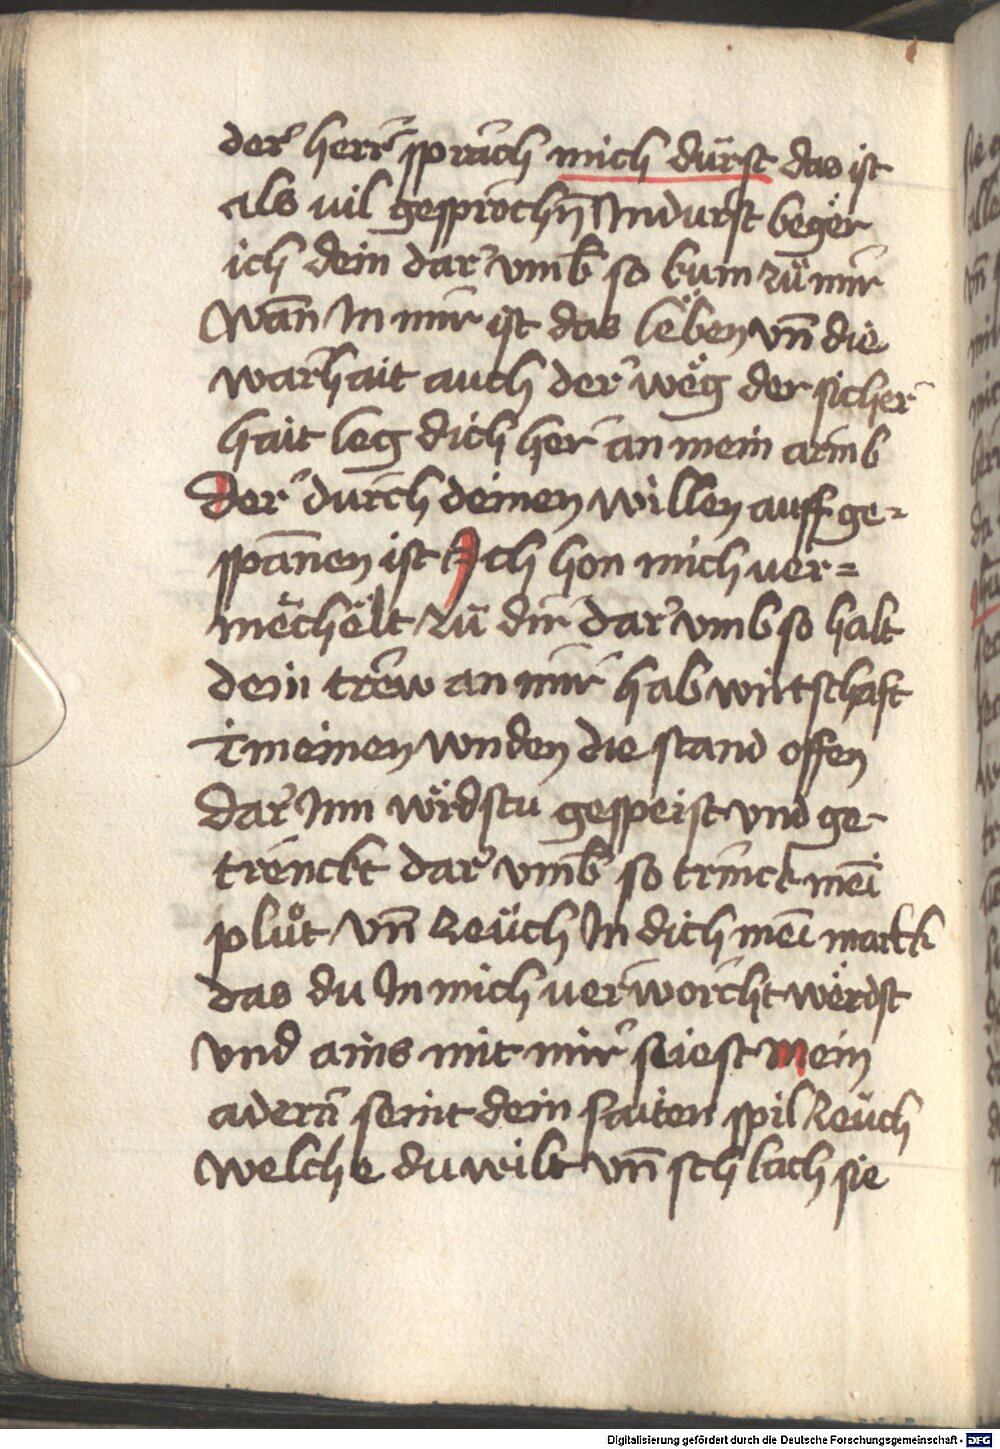 der herr sprach mich dürst das ist
als uil gesprochn̄ In durst begër
ich dein dar vmb̄ so kum zü mir
Wan̄ In mir ist das lëben vn̄ die
warhait auch der wëg der sicher
hait leg dich her an mein armb
Der durch deinen willen auff ge-
span̄en ist Ich hon mich ver=
mechëlt zü dir dar vmb so halt
dein trew an mir hab wirtschaft
ī meinen wnden die stand offen
Dar Inn wördstu gespeist vnd ge-
trenckt dar vmb̄ so trinck meī
plůt vn̄ zeüch In dich meī markk
das du In mich verworcht wërdst
vnd ains mit mir seiest Mein
adern̄ seint dein saiten spil zeüch
welche du wilt vn̄ schlach sie
Digitalisierung gefördert durch die Deutsche Forschungsgemeinschaft - DFG